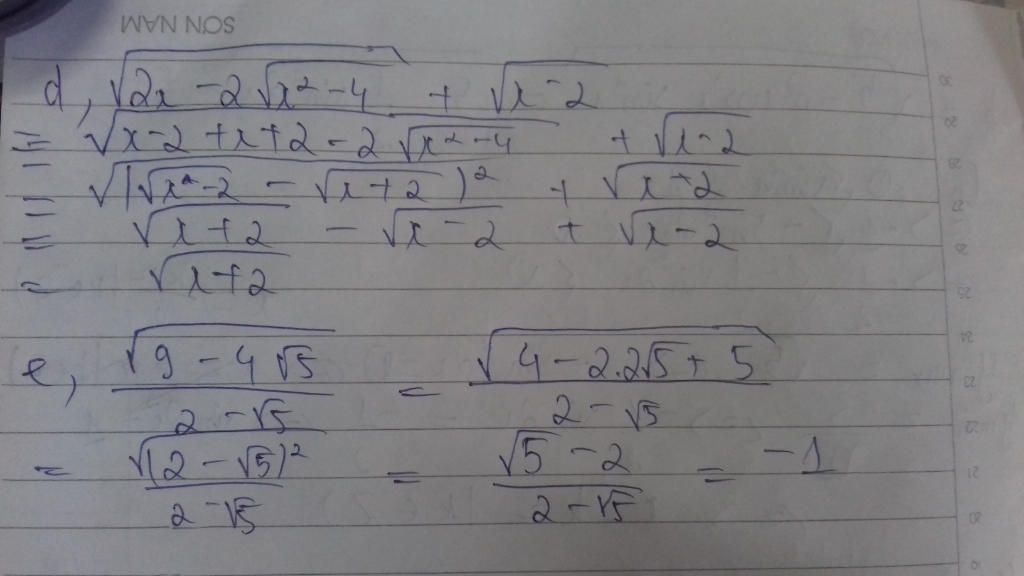 SƠN NAM
d, √(2x - 2√(x² - 4)) + √(x - 2)
= √(x - 2 + x + 2 - 2√(x² - 4)) + √(x - 2)
= √((√(x - 2) - √(x + 2))²) + √(x - 2)
= √(x + 2) - √(x - 2) + √(x - 2)
= √(x + 2)
e, √(9 - 4√5) / (2 - √5) = √(4 - 2.2√5 + 5) / (2 - √5)
= √((2 - √5)²) / (2 - √5) = (√5 - 2) / (2 - √5) = -1